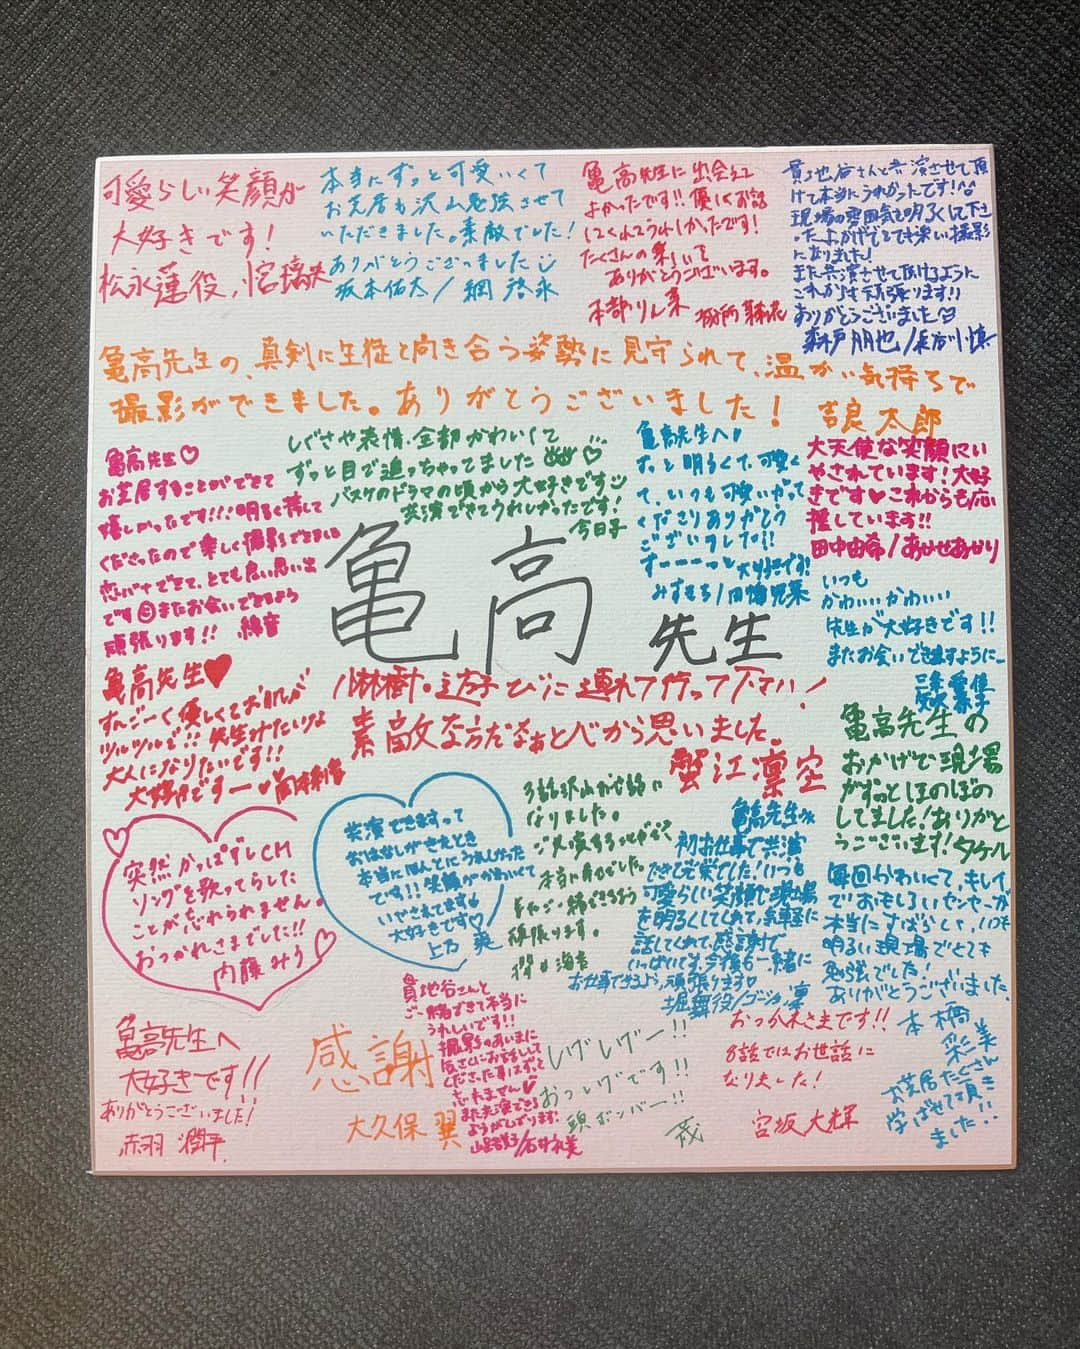 可愛らしい笑顔が
大好きです!
松永蓮役
本当にずっと可愛いくて
お芝居も沢山勉強させて
いただきました。素敵でした!
ありがとうございました
坂本佑太/綱啓永
亀高先生に出会えて
よかったです!!優しくお話
してくれてうれしかったです!
たくさんの
ありがとうございます。
本部りん
貫地谷さんと共演させて頂
けて本当にうれしかったです!
現場の雰囲気も明るくして下さ
ったおかげでとても楽しい撮影
になりました!
また共演させて頂けるように
これからも頑張ります!!
ありがとうございました
森戸朋也/長谷川慎
亀高先生の、真剣に生徒と向き合う姿勢に見守られて、温かい気持ちで
撮影ができました。ありがとうございました!
吉良太郎
亀高先生♡
お芝居することができて
嬉しかったです!!!明るく接して
くださったので楽しく撮影できました
恋バナできて、とても良い思い出
です またお会いできるよう
頑張ります!! 綿音
しぐさや表情、全部かわいくて
ずっと目で追っちゃってました
バスケのドラマの頃から大好きです
共演できてうれしかったです!
今日子
亀高先生へ
ずっと明るくて、可愛く
て、いつも可愛いがって
くださりありがとう
ございました!!
すーーーっと大好きです!
大天使な笑顔にい
やされています!大好
きです♥これからも応
援しています!!
田中由希/あかせあかり
いつも
かわいいかわいい
先生が大好きです!!
またお会いできますように
亀高
先生
亀高先生♥
すんごーく優しくてお肌が
ツルツルで!!先生みたいな
大人になりたいです!!
大好きですー♥
びに連れて行って下さい!
素敵な方だなぁと心から思いました。
蟹江凛空
亀高先生の
おかげで現場
がずっとほのぼの
してました!ありがと
うございます!タケル
突然かっぱずしCM
ソングを歌ってらした
ことが忘れられません。
おつかれさまでした!!
内藤みう
共演できますって
おはなしがきたとき
本当にほんとにうれしかった
です!!笑顔がかわいくて
いやされてます
大好きです♡
上乃
沢山お世話に
なりました。
本当に幸せでした。
またご一緒できるよう
頑張ります。
亀高先生へ
初お仕事で共演
できて光栄でした!いつも
可愛らしい笑顔で現場
を明るくしてくれて、気軽に
話してくれて、感謝で
いっぱいです、今後も一緒に
お仕事できるよう、頑張ります
堀舞役/
毎回かわいくて、キレイ
でおもしろいセンセーが
本当にすばらしく、いつも
明るい現場でとても
勉強でした!
ありがとうございました
本橋
彩美
お芝居たくさん
学ばせて頂き
ました!!
亀高先生へ
大好きです!!
ありがとうございました!
赤羽潤平
感謝
大久保翼
貫地谷さんと
ご一緒できて本当に
うれしいです!!
撮影のあいまに
気さくにお話をして
くださった事はずっと
忘れません
また共演できる
ようがんばります!
しげしげー!!
おっしげです!!
頭ボンバー!!
茂
おつかれさまです!!
8話ではお世話に
なりました!
宮坂大輝